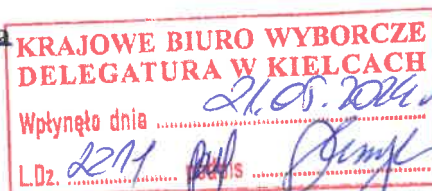 KRAJOWE BIURO WYBORCZE
DELEGATURA W KIELCACH
Wpłynęło dnia 21.05.2024
L.Dz. 2211 podpis